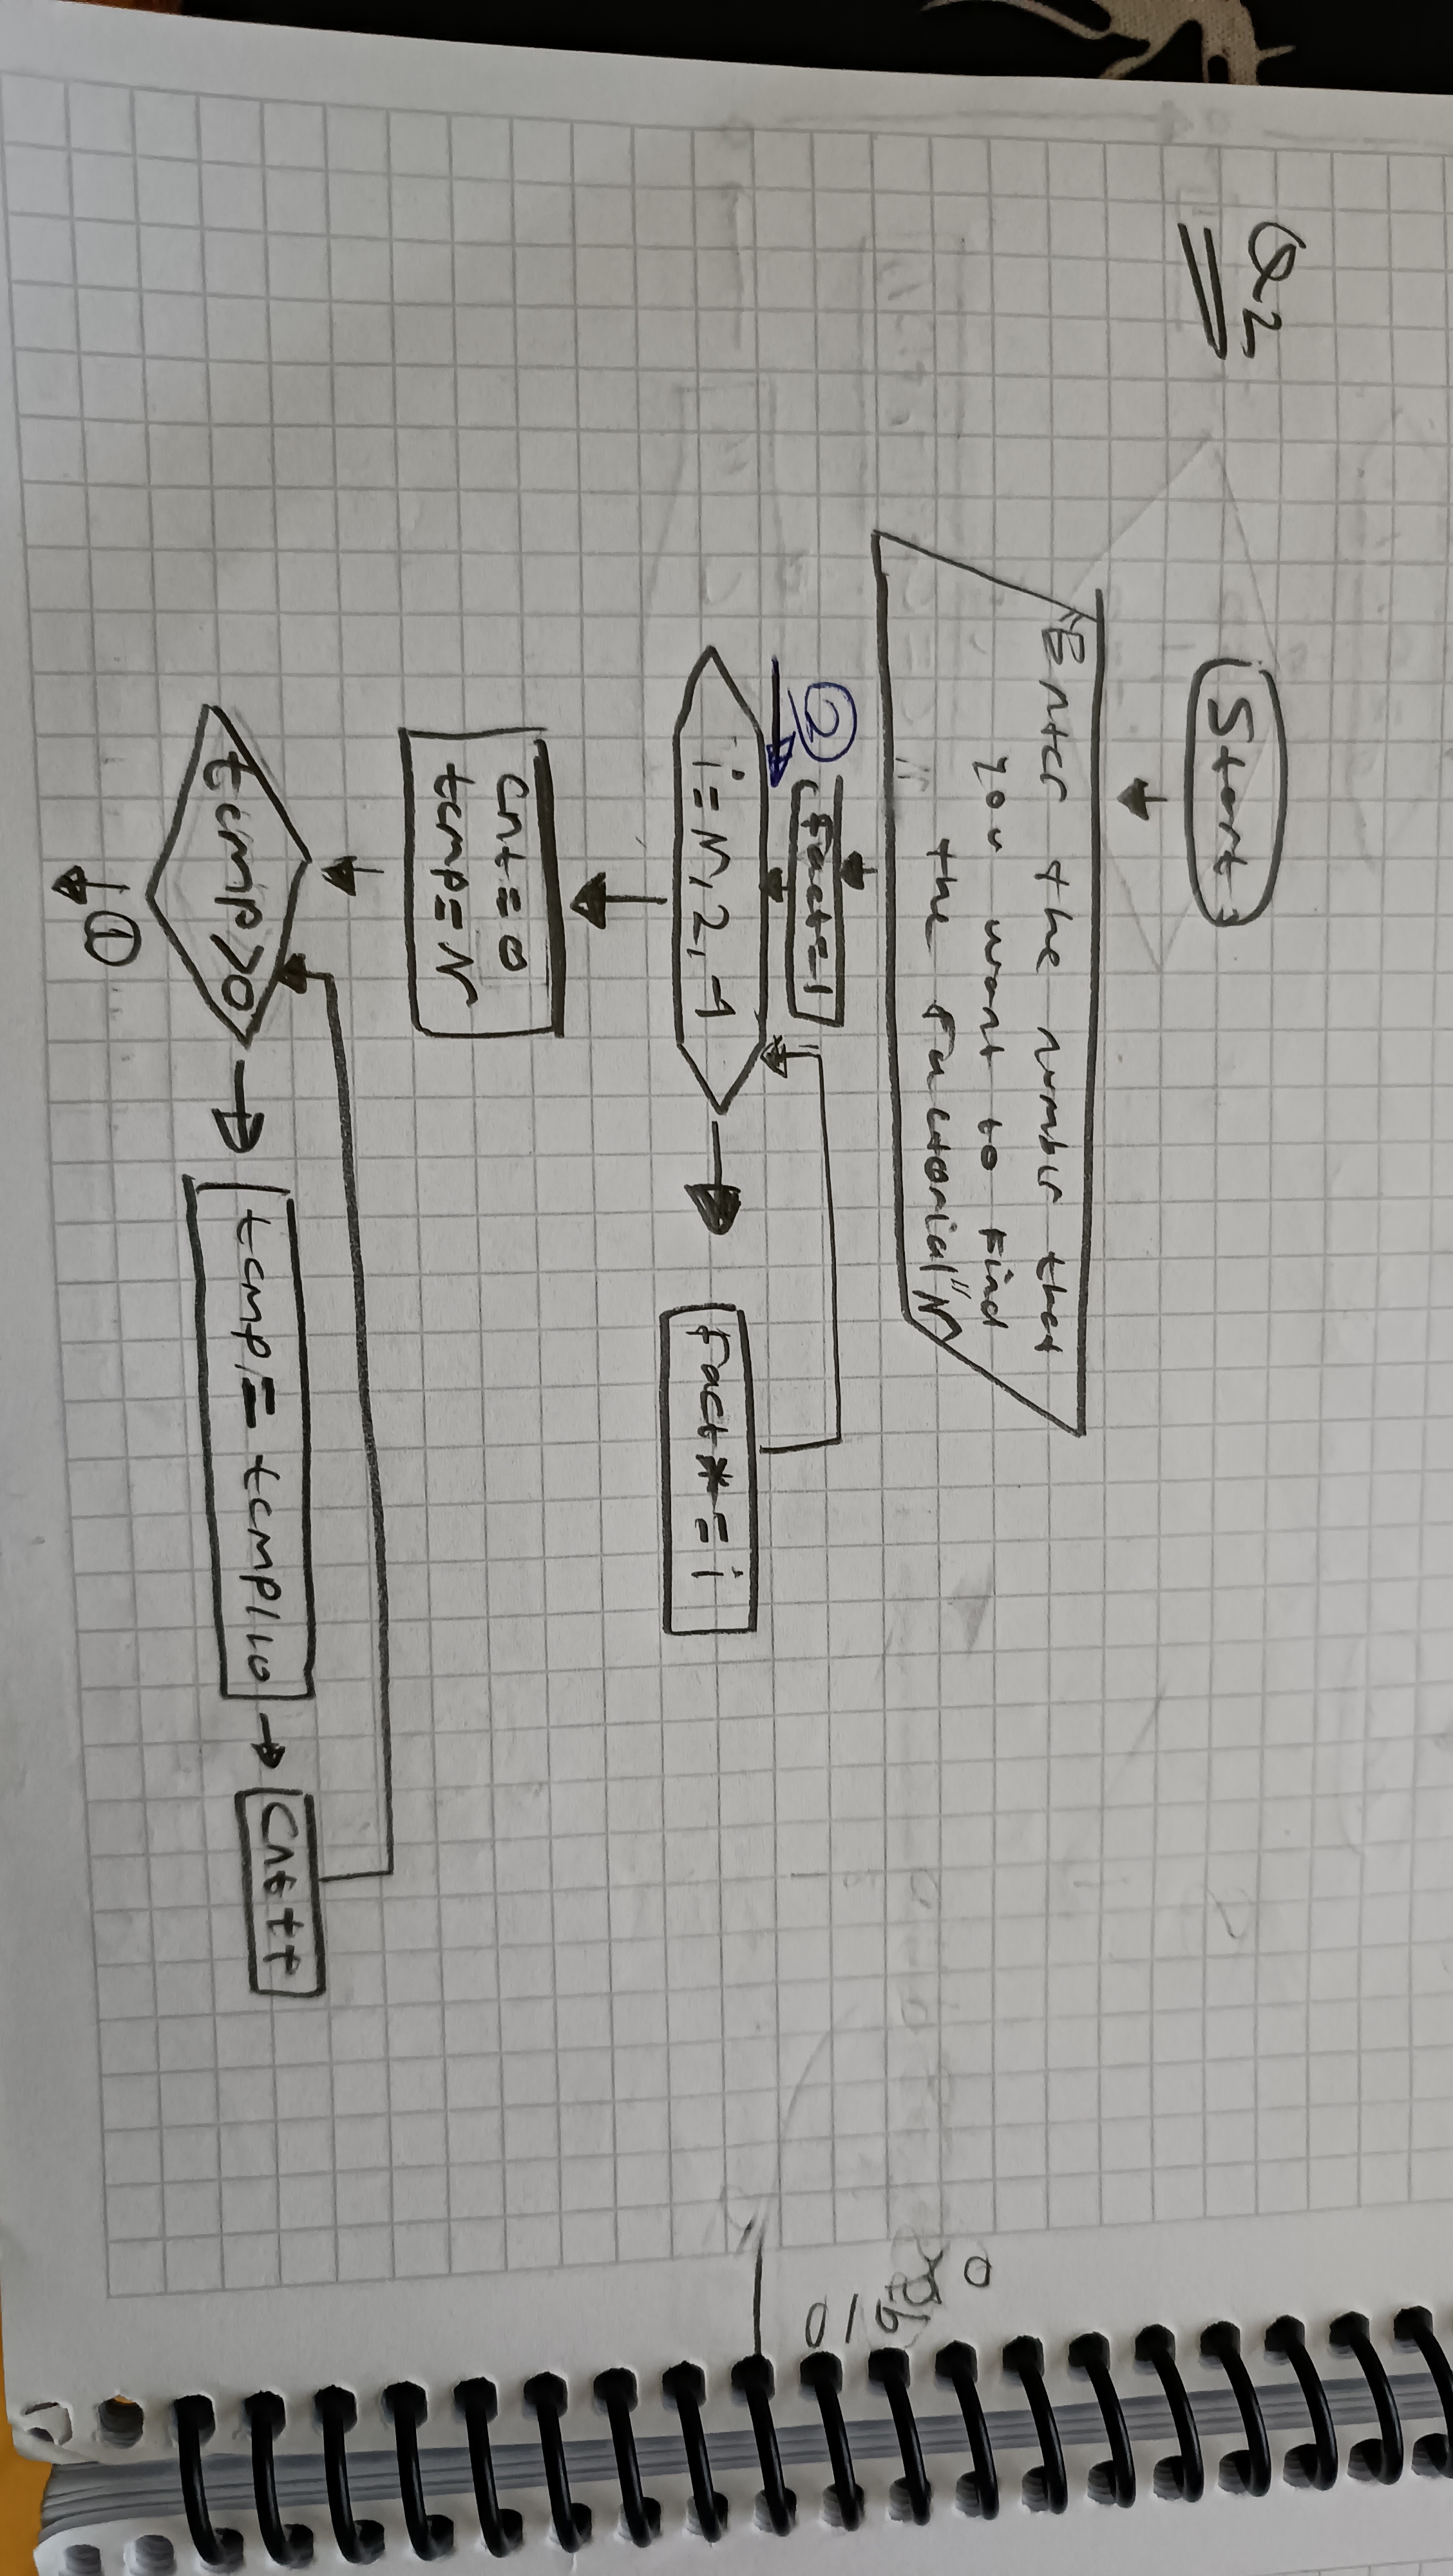 Q2
Start
"Enter the number that
you want to find
the factorial" N
②
fact=1
i=N,2,-1
fact*=i
cnt=0
temp=N
temp>0
temp=temp/10
cnt++
①